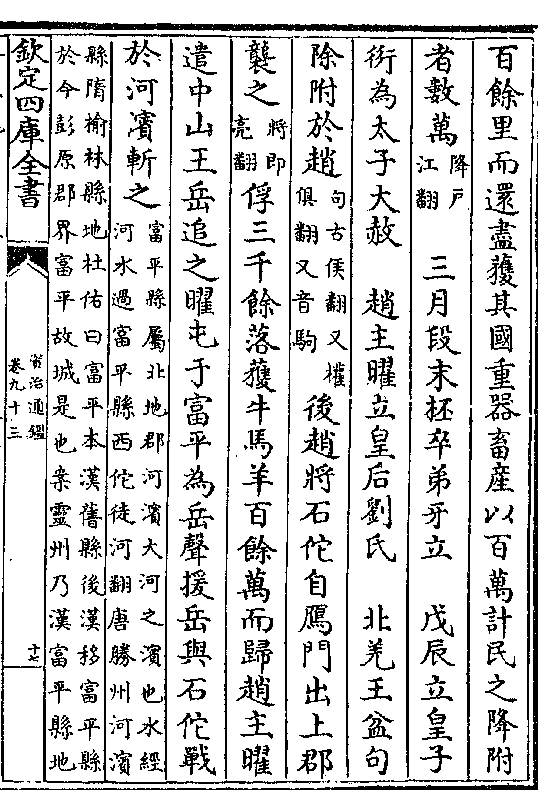 百餘里而還盡獲其國重器畜産以百萬計民之降附
者數萬降戶江翻　三月段末柸卒弟牙立　戊辰立皇子
衍為太子大赦　趙主曜立皇后劉氏　北羌王盆句
除附於趙句古侯翻又權俱翻又音駒後趙將石佗自鴈門出上郡
襲之將即亮翻俘三千餘落獲牛馬羊百餘萬而歸趙主曜
遣中山王岳追之曜屯于富平為岳聲援岳與石佗戰
於河濱斬之富平縣屬北地郡河濱大河之濱也水經
河水過富平縣西佗徒河翻唐勝州河濱
縣隋榆林縣地杜佑曰富平本漢舊縣後漢移富平縣
於今彭原郡界富平故城是也案靈州乃漢富平縣地
欽定四庫全書
資治通鑑
卷九十三
十七